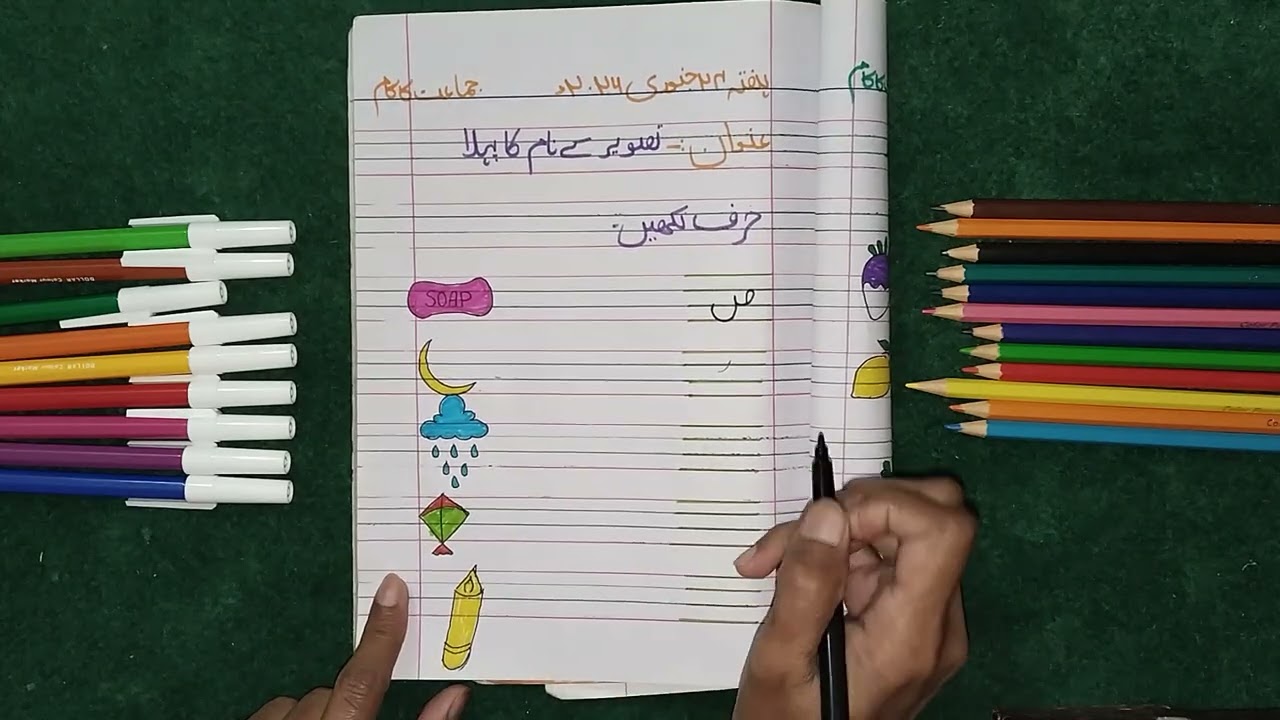 ہفتہ ۲۴ جنوری ۲۰۲۶ء جماعت کا کام
عنوان :- تصویر سے نام کا پہلا
حرف لکھیں۔
SOAP
ص
کا کام